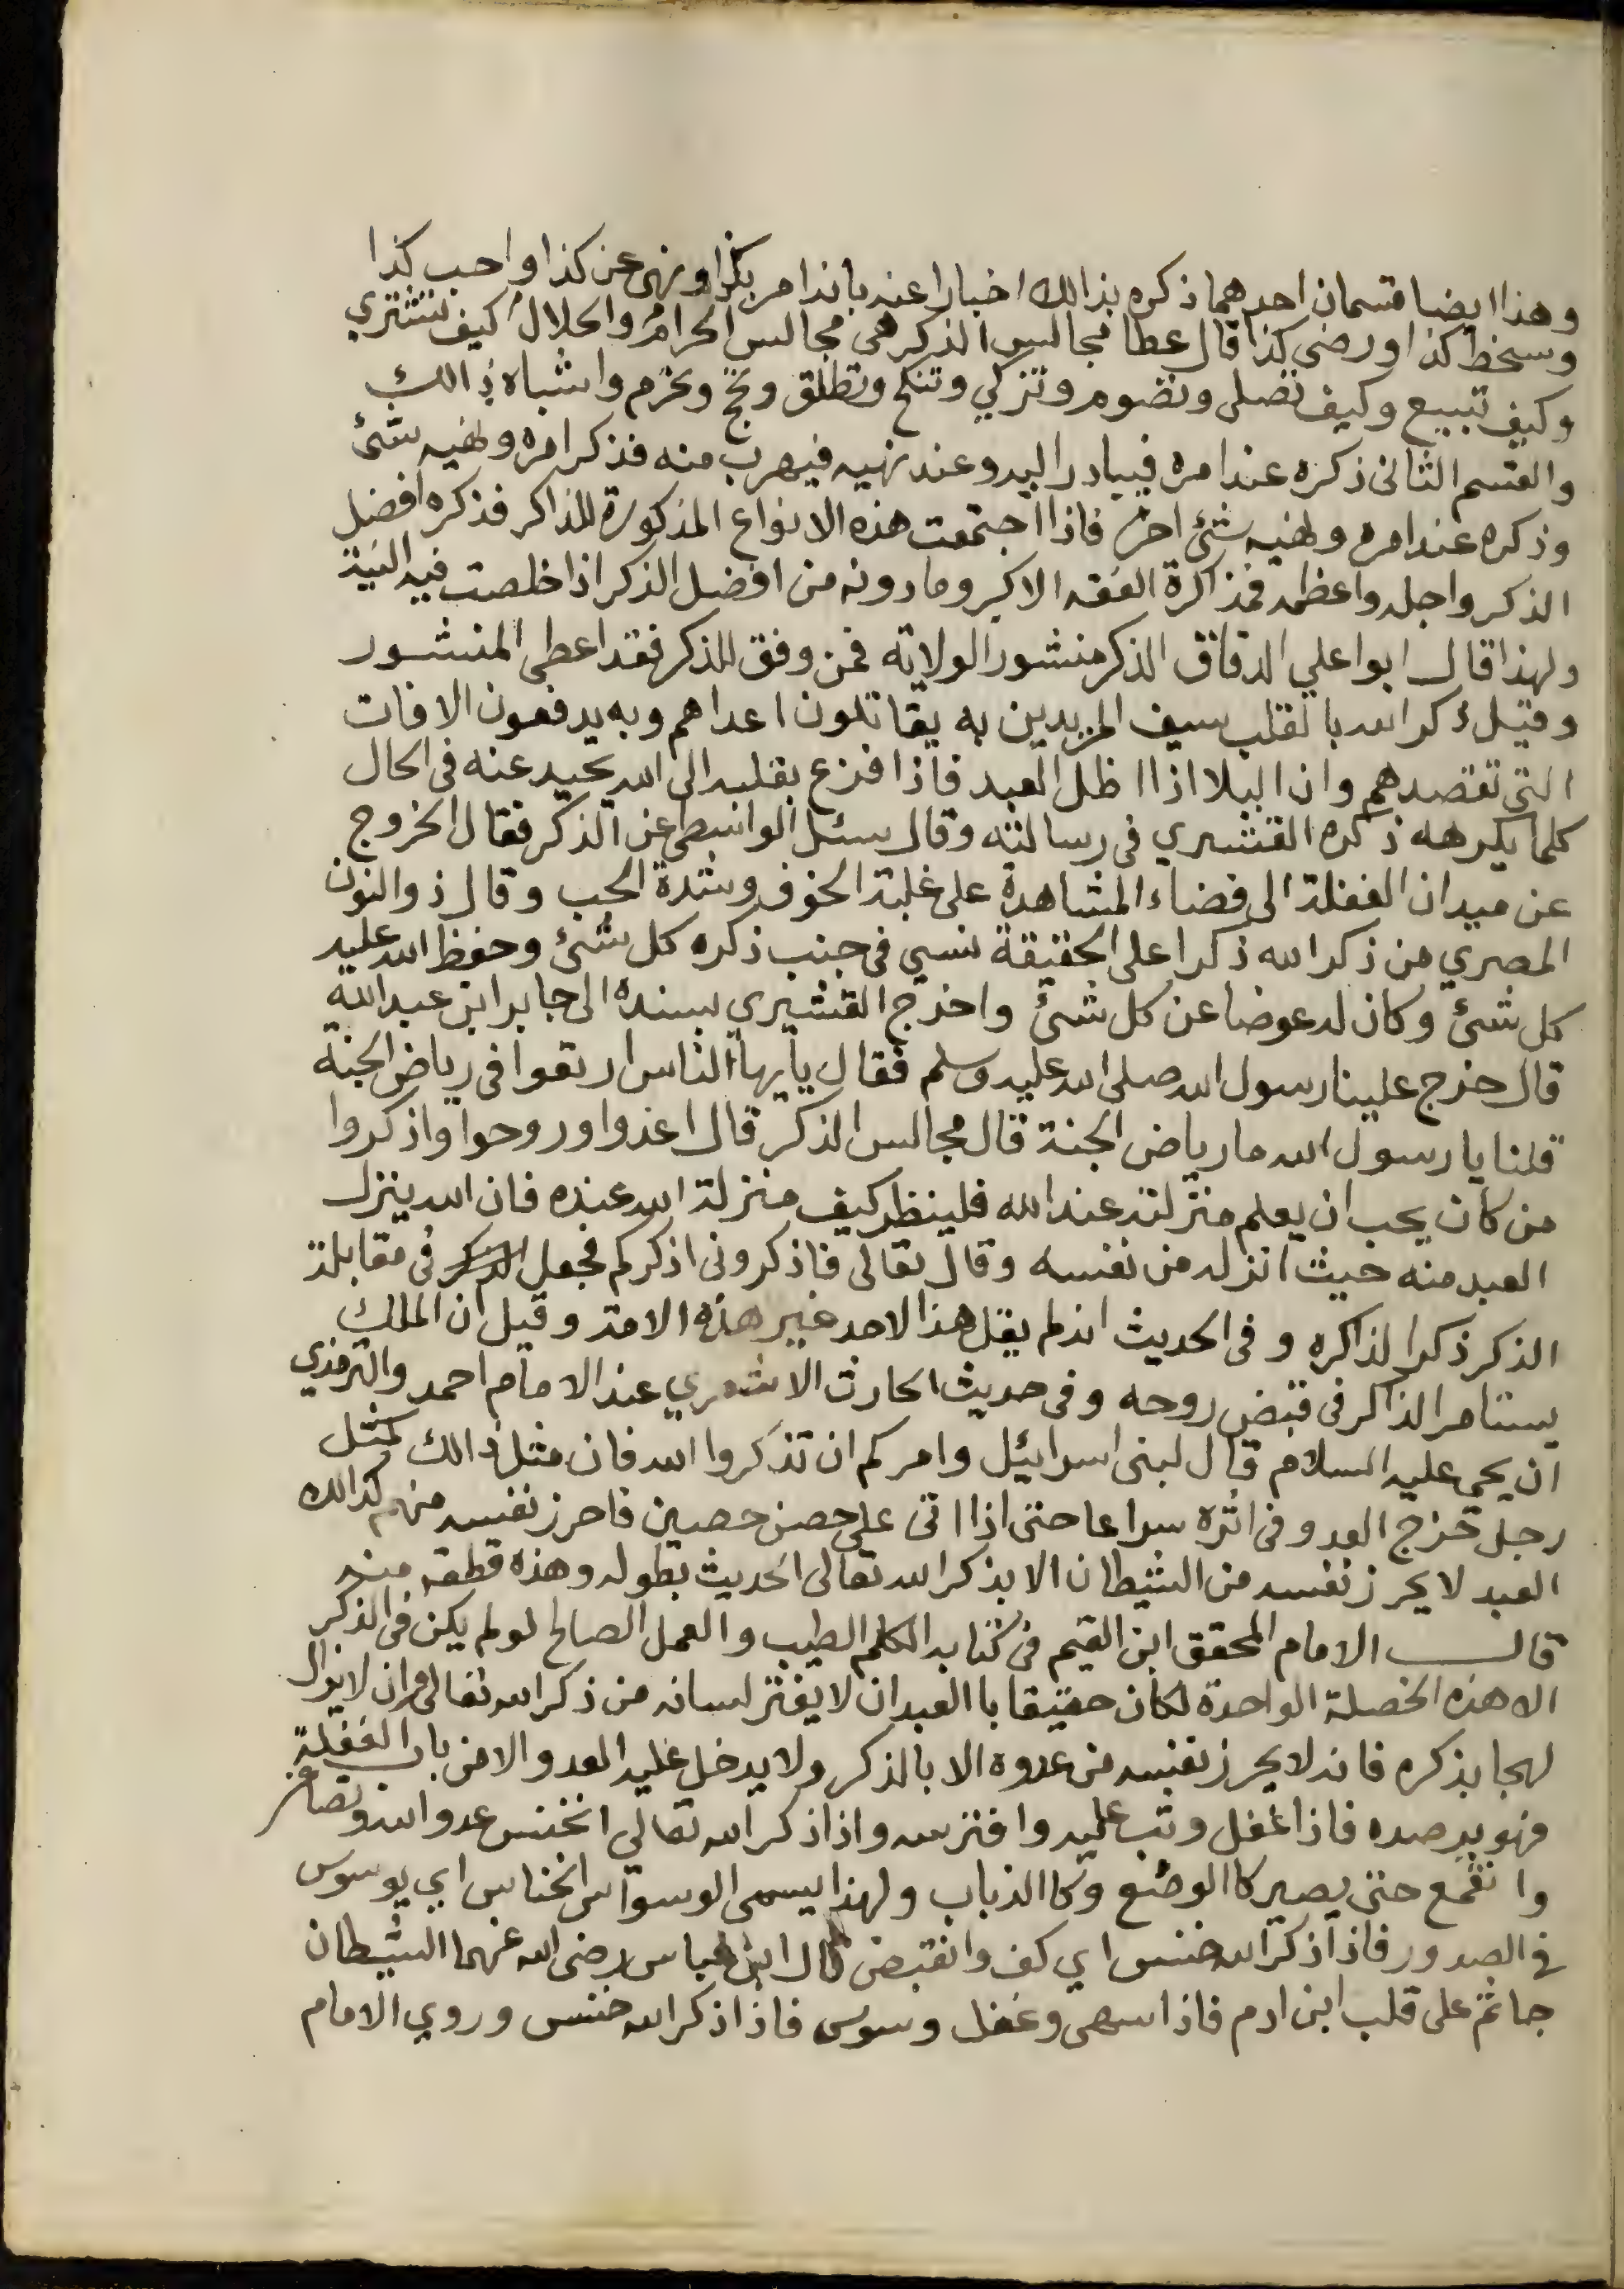 وهذا ايضا قسمان احدهما ذكره بذالك اخبارا عنه بانه امر بكذا ونهى عن كذا واحب كذا
وسخط كذا ورضى كذا قال عطا مجالس الذكر هى مجالس الحرام والحلال كيف تشتري
وكيف تبيع وكيف تصلى وتصوم وتزكي وتنكح وتطلق وتحج وتحرم واشباه ذالك
والقسم الثانى ذكره عند امره فيبادر اليه وعند نهيه فيهرب منه فذكر امره ونهيه شئ
وذكره عند امره ونهيه شئ اخر فاذا اجتمعت هذه الانواع المذكورة للذاكر فذكره افضل
الذكر واجله واعظمه فمذاكرة الفقه الاكبر وما دونه من افضل الذكر اذا خلصت فيه النية
ولهذا قال ابوا علي الدقاق الذكر منشور الولاية فمن وفق للذكر فقد اعطى المنشور
وقيل ذكر الله بالقلب سيف المريدين به يقاتلون اعداهم وبه يدفعون الافات
التي تقصدهم وان البلا اذا اظل العبد فاذا فزع بقلبه الى الله يحيد عنه فى الحال
كلما يكرهه ذكره القشيري فى رسالته وقال سئل الواسطى عن الذكر فقال الخروج
عن ميدان الغفلة الى فضاء المشاهدة على غلبة الخوف وشدة الحب وقال ذوالنون
المصري من ذكر الله ذكرا على الحقيقة نسي فى جنب ذكره كل شئ وحفظ الله عليه
كل شئ وكان له عوضا عن كل شئ واخرج القشيري بسنده الى جابر ابن عبد الله
قال خرج علينا رسول الله صلى الله عليه وسلم فقال يايها الناس ارتعوا فى رياض الجنة
قلنا يا رسول الله ما رياض الجنة قال مجالس الذكر قال اغدوا وروحوا واذكروا
من كان يحب ان يعلم منزلته عند الله فلينظر كيف منزلة الله عنده فان الله ينزل
العبد منه حيث انزله من نفسه وقال تعالى فاذكرونى اذكركم فجعل فى مقابلة
الذكر ذكرا لذاكره وفى الحديث انه لم يقل هذا لاحد غير هذه الامة وقيل ان الملك
يستامر الذاكر فى قبض روحه وفى حديث الحارث الاشعري عند الامام احمد والترمذي
ان يحي عليه السلام قال لبنى اسرائيل وامركم ان تذكروا الله فان مثل ذالك كمثل
رجل خرج العدو فى اثره سراعا حتى اذا اتى على حصن حصين فاحرز نفسه منهم كذالك
العبد لا يحرز نفسه من الشيطان الا بذكر الله تعالى الحديث بطوله وهذه قطعة منه
قال الامام المحقق ابن القيم فى كتابه الكلم الطيب والعمل الصالح لو لم يكن فى الذكر
الا هذه الخصلة الواحدة لكان حقيقا با العبد ان لا يفتر لسانه من ذكر الله تعالى وان لا يزال
لهجا بذكره فانه لا يحرز نفسه من عدوه الا بالذكر ولا يدخل عليه العدو الا من باب الغفلة
فهو يرصده فاذا غفل وثب عليه وافترسه واذا ذكر الله تعالي انخنس عدو الله وتصاغر
وانقمع حتى يصير كا الوصع وكا الذباب ولهذا يسمى الوسواس الخناس اي يوسوس
في الصدور فاذا ذكر الله خنس اي كف وانقبض قال ابن عباس رضى الله عنهما الشيطان
جاثم على قلب ابن ادم فاذا سهى وغفل وسوس فاذا ذكر الله خنس وروي الامام